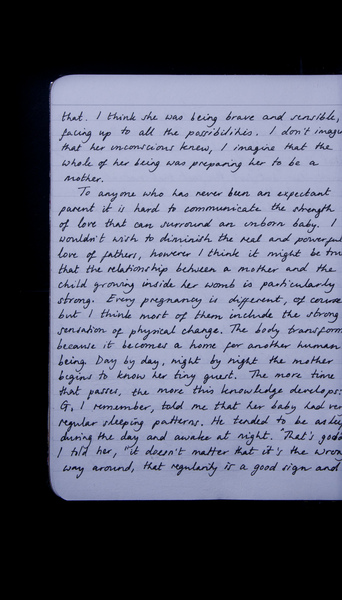 that. I think she was being brave and sensible,
facing up to all the possibilities. I don't imagi
that her unconscious knew, I imagine that the
whole of her being was preparing her to be a
mother.
To anyone who has never been an expectant
parent it is hard to communicate the strength
of love that can surround an unborn baby. I
wouldn't wish to diminish the real and powerful
love of fathers, however I think it might be tru
that the relationship between a mother and the
child growing inside her womb is particularly
strong. Every pregnancy is different, of course
but I think most of them include the strong
sensation of physical change. The body transform
because it becomes a home for another human
being. Day by day, night by night the mother
begins to know her tiny guest. The more time
that passes, the more this knowledge develops.
G, I remember, told me that her baby had ver
regular sleeping patterns. He tended to be aslee
during the day and awake at night. "That's good
I told her, "it doesn't matter that it's the wron
way around, that regularity is a good sign and